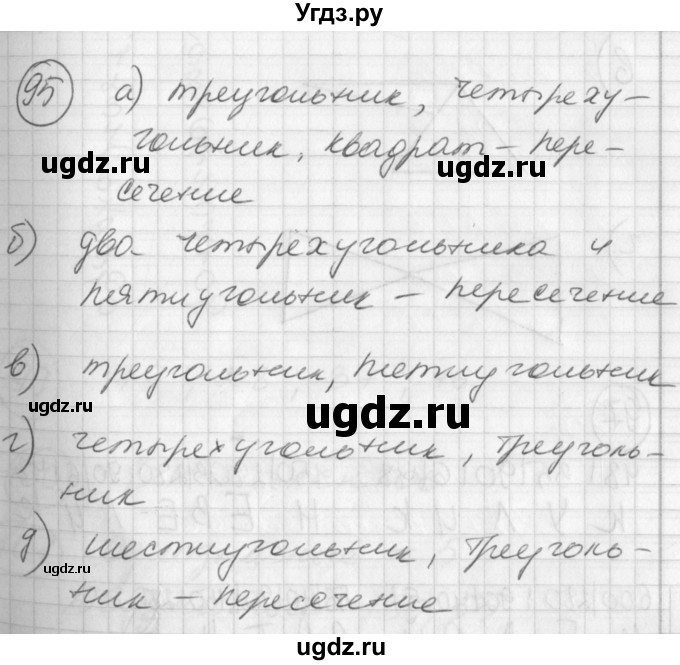 Угдз.ру
95 а) треугольник, четыреху-
гольник, квадрат - пере-
ugdz.ru
ugdz.ru
сечение
б) два четырёхугольника и
пятиугольник - пересечение
в) треугольник, пятиугольник
ugdz.ru
г) четырехугольник, треуголь-
ник
ugdz.ru
д) шестиугольник, треуголь-
ник - пересечение
ugdz.ru
ugdz.ru